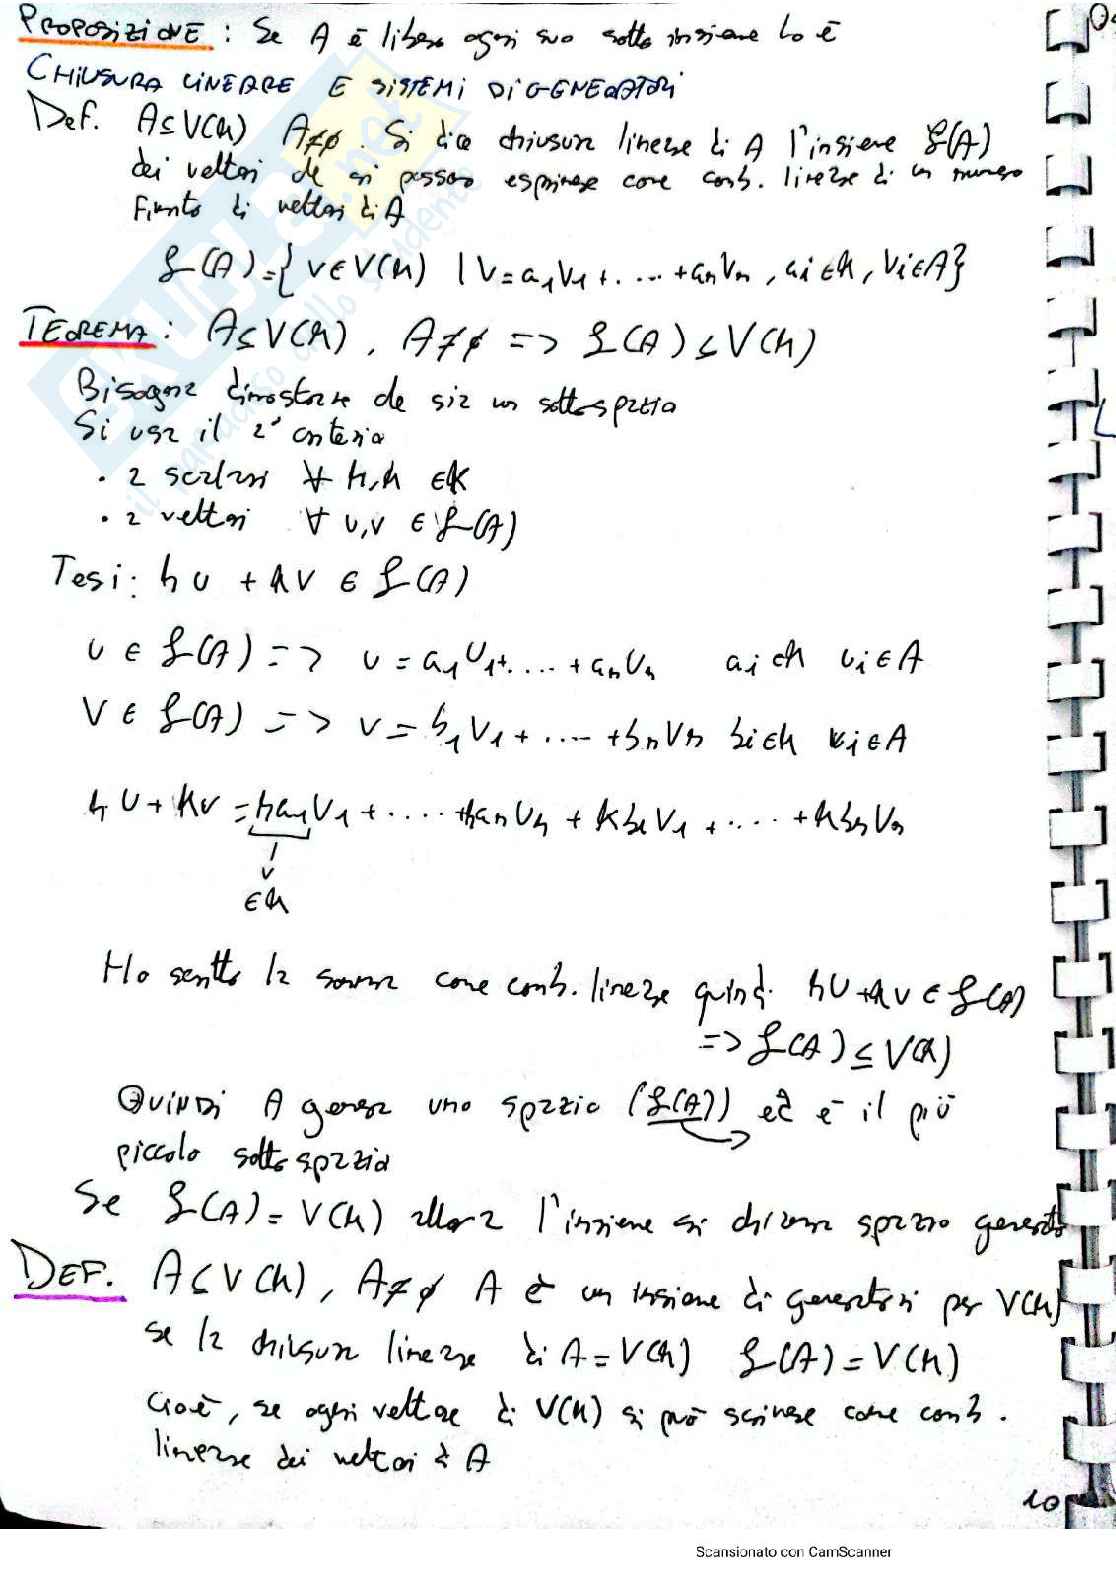 PROPOSIZIONE : Se A è libero ogni suo sotto insieme lo è
CHIUSURA LINEARE E SISTEMI DI GENERATORI
Def. A⊆V(K) A≠∅. Si dice chiusura lineare di A l'insieme ℒ(A)
dei vettori che si possono esprimere come comb. lineare di un numero
finito di vettori di A
ℒ(A)={ v∈V(K) | v=a₁v₁+....+aₙvₙ, ai∈K, vi∈A}
TEOREMA : A⊆V(K), A≠∅ => ℒ(A)≤V(K)
Bisogna dimostrare che sia un sottospazio
Si usa il 2° criterio
· 2 scalari ∀ h,k ∈K
· 2 vettori ∀ u,v ∈ ℒ(A)
Tesi: hu + kv ∈ ℒ(A)
u ∈ ℒ(A) => u = a₁u₁+....+aₙuₙ ai∈K ui∈A
v ∈ ℒ(A) => v = b₁v₁+....+bₙvₙ bi∈K vi∈A
hu+kv = ha₁u₁+....+haₙuₙ + kb₁v₁+....+kbₙvₙ
∈K
Ho scritto la somma come comb. lineare quindi hu+kv ∈ ℒ(A)
=> ℒ(A) ≤ V(K)
QUINDI A genera uno spazio (ℒ(A)) ed è il più
piccolo sottospazio
Se ℒ(A)=V(K) allora l'insieme si chiama spazio generato
DEF. A⊆V(K), A≠∅ A è un insieme di generatori per V(K)
se la chiusura lineare di A=V(K) ℒ(A)=V(K)
cioè, se ogni vettore di V(K) si può scrivere come comb.
lineare dei vettori di A
10
Scansionato con CamScanner